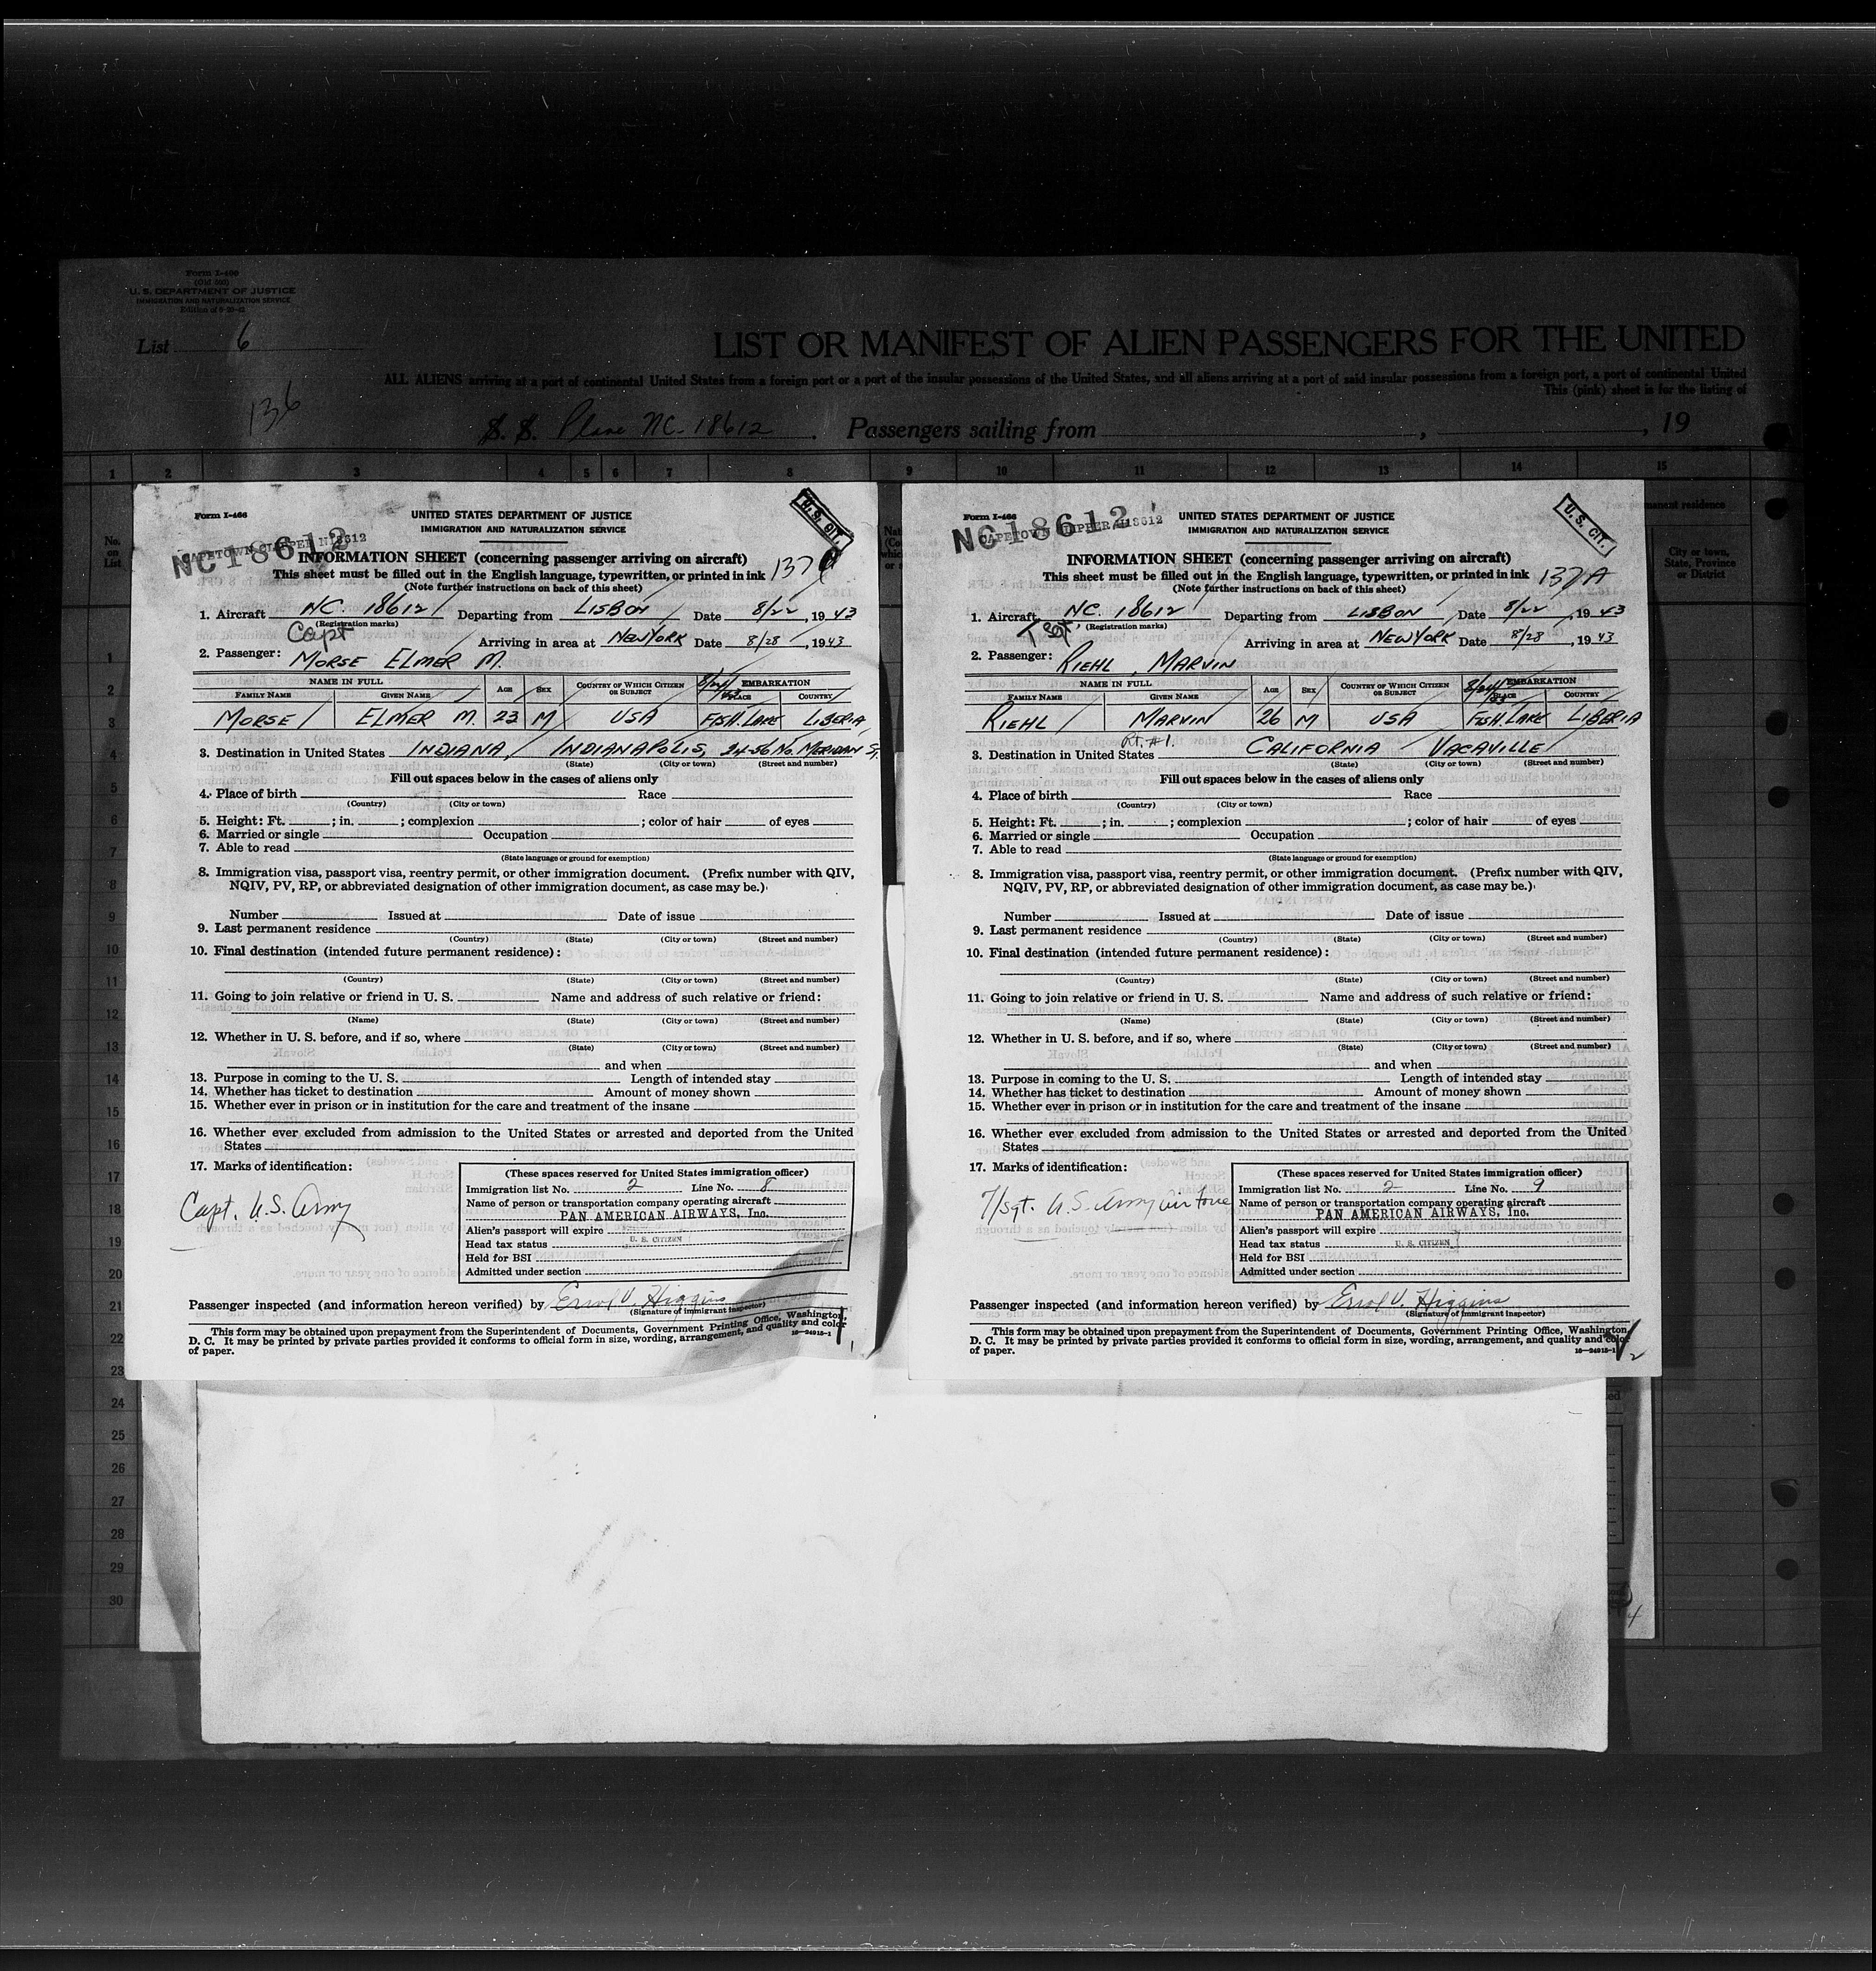 Form I-466
(Old 500)
U. S. DEPARTMENT OF JUSTICE
IMMIGRATION AND NATURALIZATION SERVICE
List 6
LIST OR MANIFEST OF ALIEN PASSENGERS FOR THE UNITED
ALL ALIENS arriving at a port of continental United States from a foreign port or a port of the insular possessions of the United States, and all aliens arriving at a port of said insular possessions from a foreign port, a port of continental United
This (pink) sheet is for the listing of
136
S. S. Plane NC. 18612 . Passengers sailing from , , 19
1 2 3 4 5 6 7 8 9 10 11 12 13 14 15
No. on List
City or town, State, Province or District
Form I-466
UNITED STATES DEPARTMENT OF JUSTICE
IMMIGRATION AND NATURALIZATION SERVICE
U. S. CIT.
CAPETOWN CLIPPER N18612
NC 18612
INFORMATION SHEET (concerning passenger arriving on aircraft)
This sheet must be filled out in the English language, typewritten, or printed in ink
(Note further instructions on back of this sheet)
137
1. Aircraft NC. 18612 Departing from LISBON Date 8/22, 1943
(Registration marks)
Capt
Arriving in area at NEW YORK Date 8/28, 1943
2. Passenger: MORSE ELMER M.
NAME IN FULL AGE SEX COUNTRY OF WHICH CITIZEN OR SUBJECT EMBARKATION
FAMILY NAME GIVEN NAME PLACE COUNTRY
MORSE ELMER M. 23 M USA FISH. LAKE LIBERIA
3. Destination in United States INDIANA, INDIANAPOLIS, 24-56 No. MERIDIAN St.
(State) (City or town) (Street and number)
Fill out spaces below in the cases of aliens only
4. Place of birth Race
(Country) (City or town)
5. Height: Ft. ; in. ; complexion ; color of hair of eyes
6. Married or single Occupation
7. Able to read
(State language or ground for exemption)
8. Immigration visa, passport visa, reentry permit, or other immigration document. (Prefix number with QIV,
NQIV, PV, RP, or abbreviated designation of other immigration document, as case may be.)
Number Issued at Date of issue
9. Last permanent residence
(Country) (State) (City or town) (Street and number)
10. Final destination (intended future permanent residence):
(Country) (State) (City or town) (Street and number)
11. Going to join relative or friend in U. S. Name and address of such relative or friend:
(Name) (State) (City or town) (Street and number)
12. Whether in U. S. before, and if so, where
(State) (City or town) (Street and number)
and when
13. Purpose in coming to the U. S. Length of intended stay
14. Whether has ticket to destination Amount of money shown
15. Whether ever in prison or in institution for the care and treatment of the insane
16. Whether ever excluded from admission to the United States or arrested and deported from the United
States
17. Marks of identification:
Capt. U.S. Army
(These spaces reserved for United States immigration officer)
Immigration list No. 2 Line No. 8
Name of person or transportation company operating aircraft
PAN AMERICAN AIRWAYS, Inc.
Alien's passport will expire
Head tax status U. S. CITIZEN
Held for BSI
Admitted under section
Passenger inspected (and information hereon verified) by Errol V. Higgins
(Signature of immigrant inspector)
This form may be obtained upon prepayment from the Superintendent of Documents, Government Printing Office, Washington,
D. C. It may be printed by private parties provided it conforms to official form in size, wording, arrangement, and quality and color
of paper. 16—24915-1
Form I-466
UNITED STATES DEPARTMENT OF JUSTICE
IMMIGRATION AND NATURALIZATION SERVICE
U. S. CIT.
CAPETOWN CLIPPER N18612
NC 18612
INFORMATION SHEET (concerning passenger arriving on aircraft)
This sheet must be filled out in the English language, typewritten, or printed in ink
(Note further instructions on back of this sheet)
137A
1. Aircraft NC. 18612 Departing from LISBON Date 8/22, 1943
(Registration marks)
T Sgt.
Arriving in area at NEW YORK Date 8/28, 1943
2. Passenger: RIEHL, MARVIN
NAME IN FULL AGE SEX COUNTRY OF WHICH CITIZEN OR SUBJECT EMBARKATION
FAMILY NAME GIVEN NAME PLACE COUNTRY
RIEHL MARVIN 26 M USA FISH. LAKE LIBERIA
Rt. #1.
3. Destination in United States CALIFORNIA VACAVILLE
(State) (City or town) (Street and number)
Fill out spaces below in the cases of aliens only
4. Place of birth Race
(Country) (City or town)
5. Height: Ft. ; in. ; complexion ; color of hair of eyes
6. Married or single Occupation
7. Able to read
(State language or ground for exemption)
8. Immigration visa, passport visa, reentry permit, or other immigration document. (Prefix number with QIV,
NQIV, PV, RP, or abbreviated designation of other immigration document, as case may be.)
Number Issued at Date of issue
9. Last permanent residence
(Country) (State) (City or town) (Street and number)
10. Final destination (intended future permanent residence):
(Country) (State) (City or town) (Street and number)
11. Going to join relative or friend in U. S. Name and address of such relative or friend:
(Name) (State) (City or town) (Street and number)
12. Whether in U. S. before, and if so, where
(State) (City or town) (Street and number)
and when
13. Purpose in coming to the U. S. Length of intended stay
14. Whether has ticket to destination Amount of money shown
15. Whether ever in prison or in institution for the care and treatment of the insane
16. Whether ever excluded from admission to the United States or arrested and deported from the United
States
17. Marks of identification:
T/Sgt. U.S. Army Air Force
(These spaces reserved for United States immigration officer)
Immigration list No. 2 Line No. 9
Name of person or transportation company operating aircraft
PAN AMERICAN AIRWAYS, Inc.
Alien's passport will expire
Head tax status U. S. CITIZEN
Held for BSI
Admitted under section
Passenger inspected (and information hereon verified) by Errol V. Higgins
(Signature of immigrant inspector)
This form may be obtained upon prepayment from the Superintendent of Documents, Government Printing Office, Washington,
D. C. It may be printed by private parties provided it conforms to official form in size, wording, arrangement, and quality and color
of paper. 16—24915-1